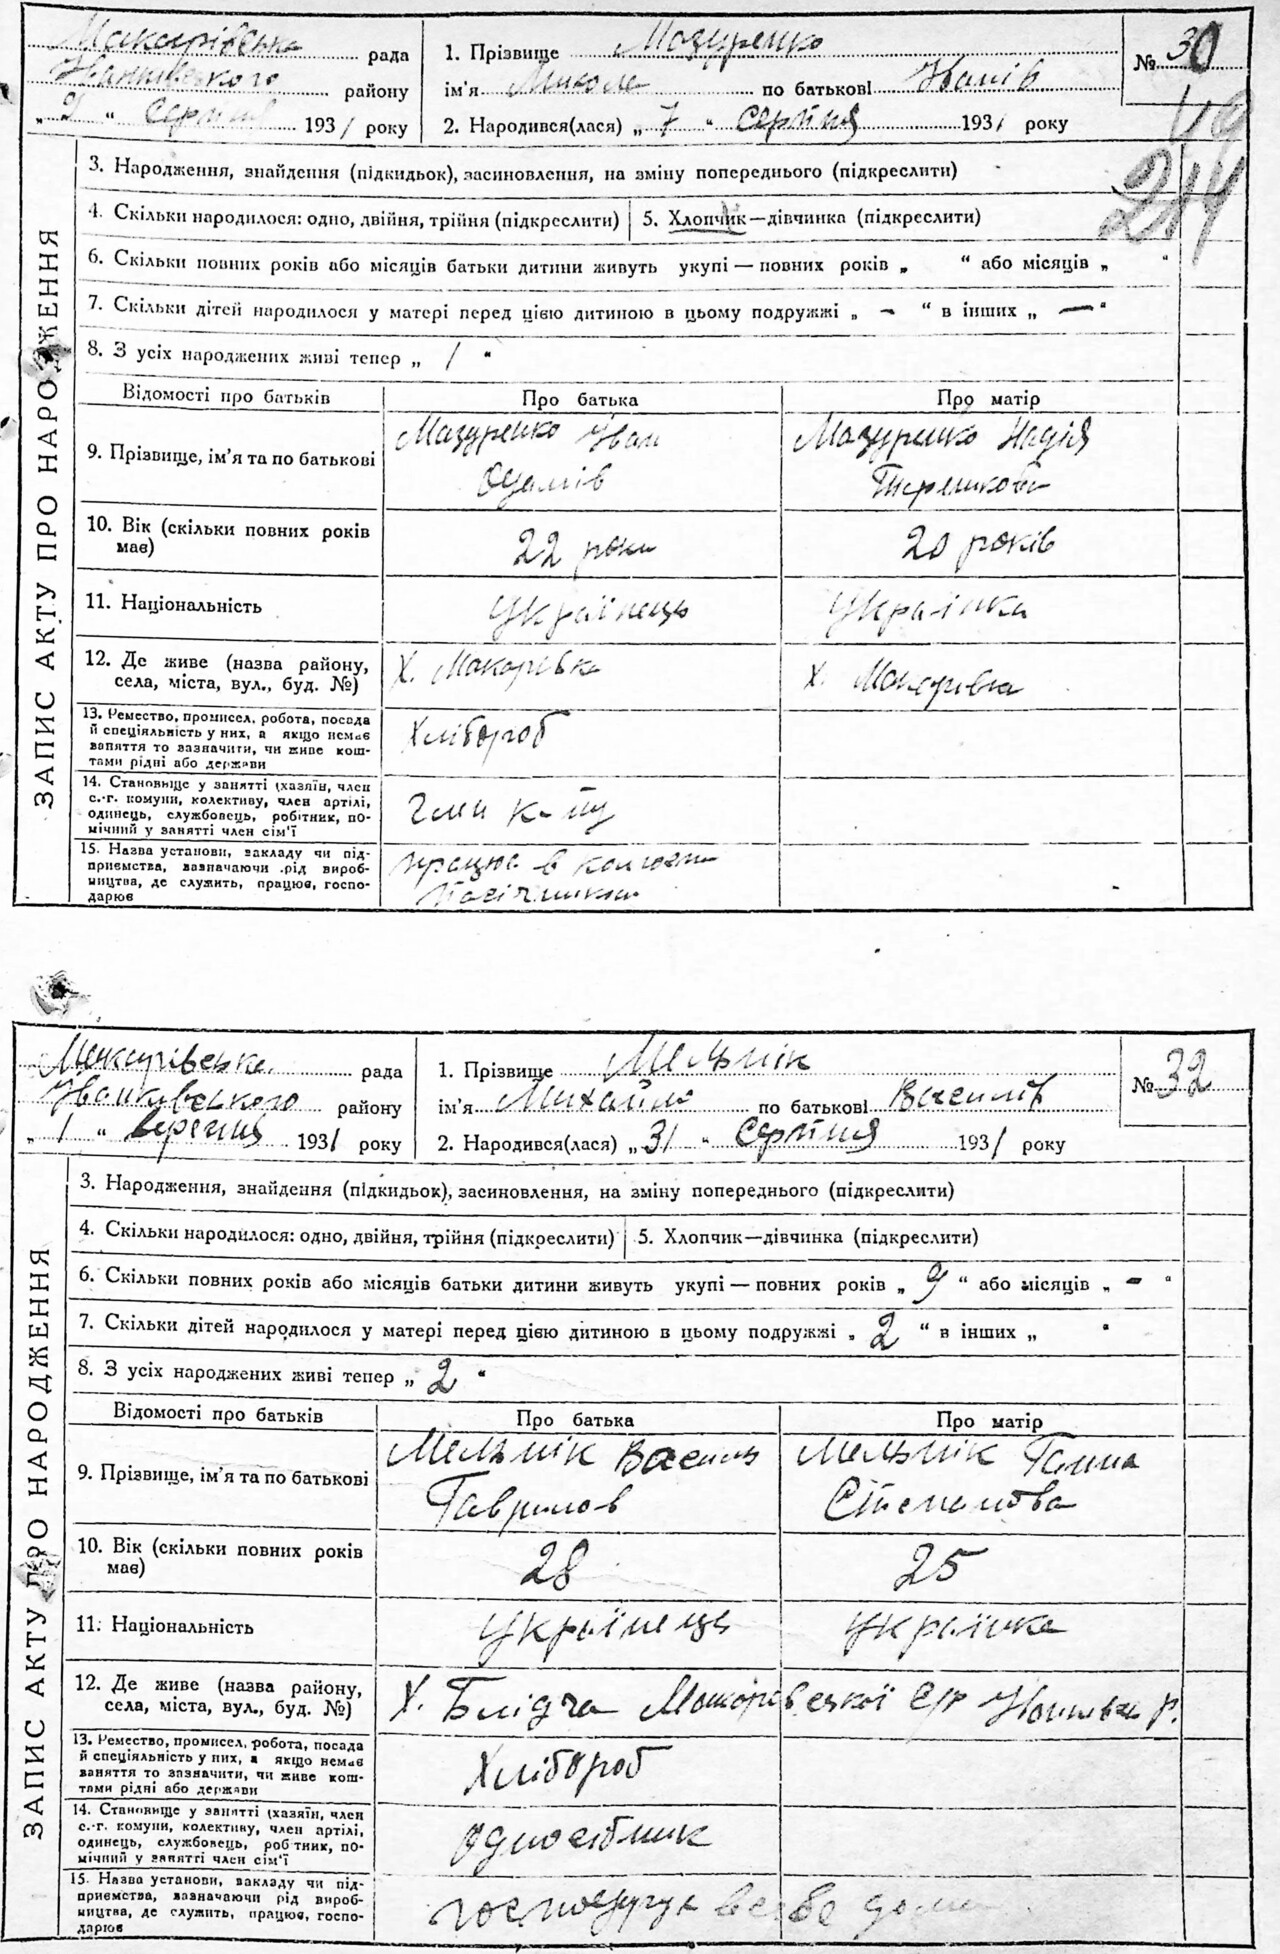 Макарівська рада
Іванківського району
„ 9 “ серпня 1931 року
1. Прізвище Мазуренко
ім'я Микола по батькові Іванів
2. Народився(лася) „ 7 “ серпня 1931 року
№ 30
49
214
ЗАПИС АКТУ ПРО НАРОДЖЕННЯ
3. Народження, знайдення (підкидьок), засиновлення, на зміну попереднього (підкреслити)
4. Скільки народилося: одно, двійня, трійня (підкреслити) 5. Хлопчик—дівчинка (підкреслити)
6. Скільки повних років або місяців батьки дитини живуть укупі — повних років „ “ або місяців „ “
7. Скільки дітей народилося у матері перед цією дитиною в цьому подружжі „ - “ в інших „ — “
8. З усіх народжених живі тепер „ 1 “
Відомості про батьків Про батька Про матір
9. Прізвище, ім'я та по батькові
Мазуренко Іван
Адамів
Мазуренко Надія
10. Вік (скільки повних років має)
22 роки
20 років
11. Національність
Українець
Українка
12. Де живе (назва району,
села, міста, вул., буд. №)
Х. Макарівка
х. Макарівка
13. Ремество, промисел, робота, посада
й спеціяльність у них, а якщо немає
заняття то зазначити, чи живе кош-
тами рідні або держави
Хлібороб
14. Становище у занятті (хазяїн, член
с.-г. комуни, колективу, член артілі,
одинець, службовець, робітник, по-
мічний у занятті член сім'ї
Член к-ту
15. Назва установи, закладу чи під-
приємства, зазначаючи рід вироб-
ництва, де служить, працює, госпо-
дарює
працює в
Макарівська рада
Іванківського району
„ 1 “ вересня 1931 року
1. Прізвище Мельнік
ім'я Михайло по батькові Василів
2. Народився(лася) „ 31 “ серпня 1931 року
№ 32
ЗАПИС АКТУ ПРО НАРОДЖЕННЯ
3. Народження, знайдення (підкидьок), засиновлення, на зміну попереднього (підкреслити)
4. Скільки народилося: одно, двійня, трійня (підкреслити) 5. Хлопчик—дівчинка (підкреслити)
6. Скільки повних років або місяців батьки дитини живуть укупі — повних років „ 9 “ або місяців „ - “
7. Скільки дітей народилося у матері перед цією дитиною в цьому подружжі „ 2 “ в інших „ “
8. З усіх народжених живі тепер „ 2 “
Відомості про батьків Про батька Про матір
9. Прізвище, ім'я та по батькові
Мельнік Василь
Гаврилов
Мельнік Ганна
Степанова
10. Вік (скільки повних років має)
28
25
11. Національність
Українець
Українка
12. Де живе (назва району,
села, міста, вул., буд. №)
Х. Блідча Макарівської с/р р.
13. Ремество, промисел, робота, посада
й спеціяльність у них, а якщо немає
заняття то зазначити, чи живе кош-
тами рідні або держави
Хлібороб
14. Становище у занятті (хазяїн, член
с.-г. комуни, колективу, член артілі,
одинець, службовець, робітник, по-
мічний у занятті член сім'ї
односібник
15. Назва установи, закладу чи під-
приємства, зазначаючи рід вироб-
ництва, де служить, працює, госпо-
дарює
господарує в себе дома